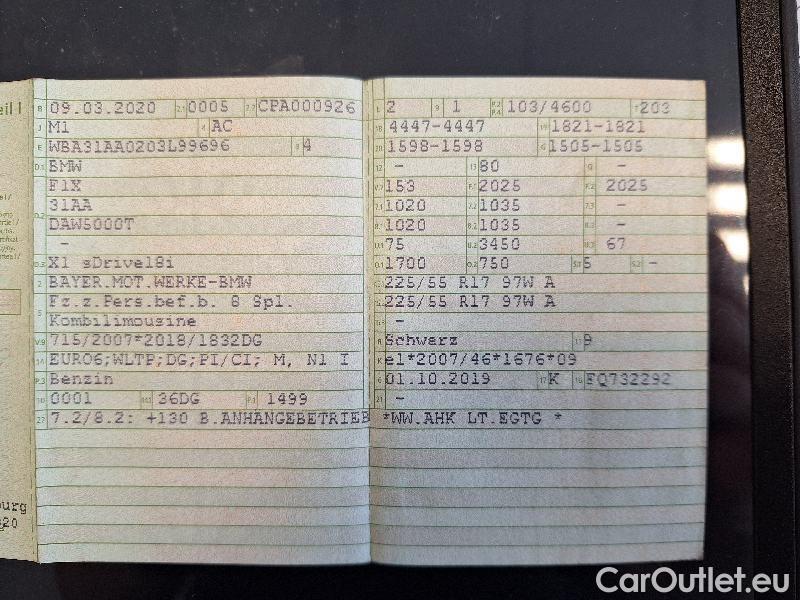 eil I
B 09.03.2020 2.1 0005 2.2 CPA000926
J M1 4 AC
E WBA31AA0203L99696 3 4
D.1 BMW
F1X
D.2 31AA
DAW5000T
-
D.3 X1 sDrive18i
2 BAYER.MOT.WERKE-BMW
5 Fz.z.Pers.bef.b. 8 Spl.
Kombilimousine
V.9 715/2007*2018/1832DG
14 EURO6;WLTP;DG;PI/CI; M, N1 I
P.3 Benzin
10 0001 14.1 36DG P.1 1499
22 7.2/8.2: +130 B.ANHÄNGEBETRIEB *WW.AHK LT.EGTG *
L 2 9 1 P.2 P.4 103/4600 T 203
18 4447-4447 19 1821-1821
20 1598-1598 G 1505-1505
12 - 13 80 Q -
V.7 153 F.1 2025 F.2 2025
7.1 1020 7.2 1035 7.3 -
8.1 1020 8.2 1035 8.3 -
U.1 75 U.2 3450 U.3 67
O.1 1700 O.2 750 S.1 5 S.2 -
15.1 225/55 R17 97W A
15.2 225/55 R17 97W A
-
R Schwarz 11 9
K e1*2007/46*1676*09
6 01.10.2019 17 K 16 FQ732292
21 -
burg
CarOutlet.eu